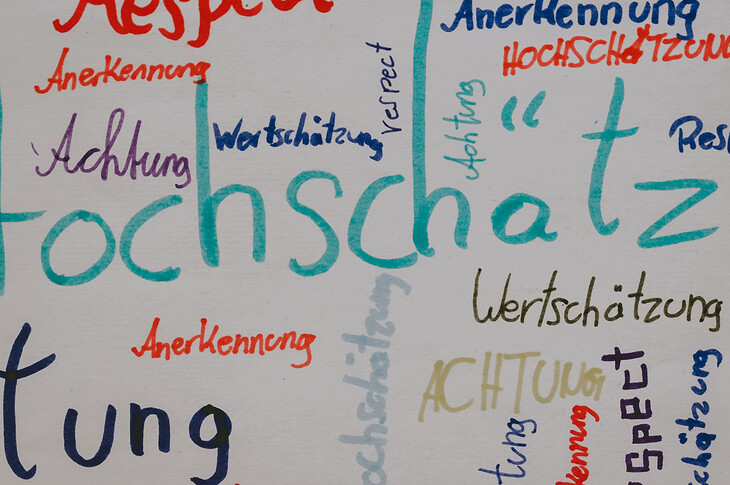 Respect
Anerkennung
HOCHSCHÄTZUNG
Anerkennung
respect
Achtung
Wertschätzung
Achtung
Res
Hochschätz
Wertschätzung
Anerkennung
tung
ochschätzung
ACHTUNG
tung
kennung
spect
schätzung